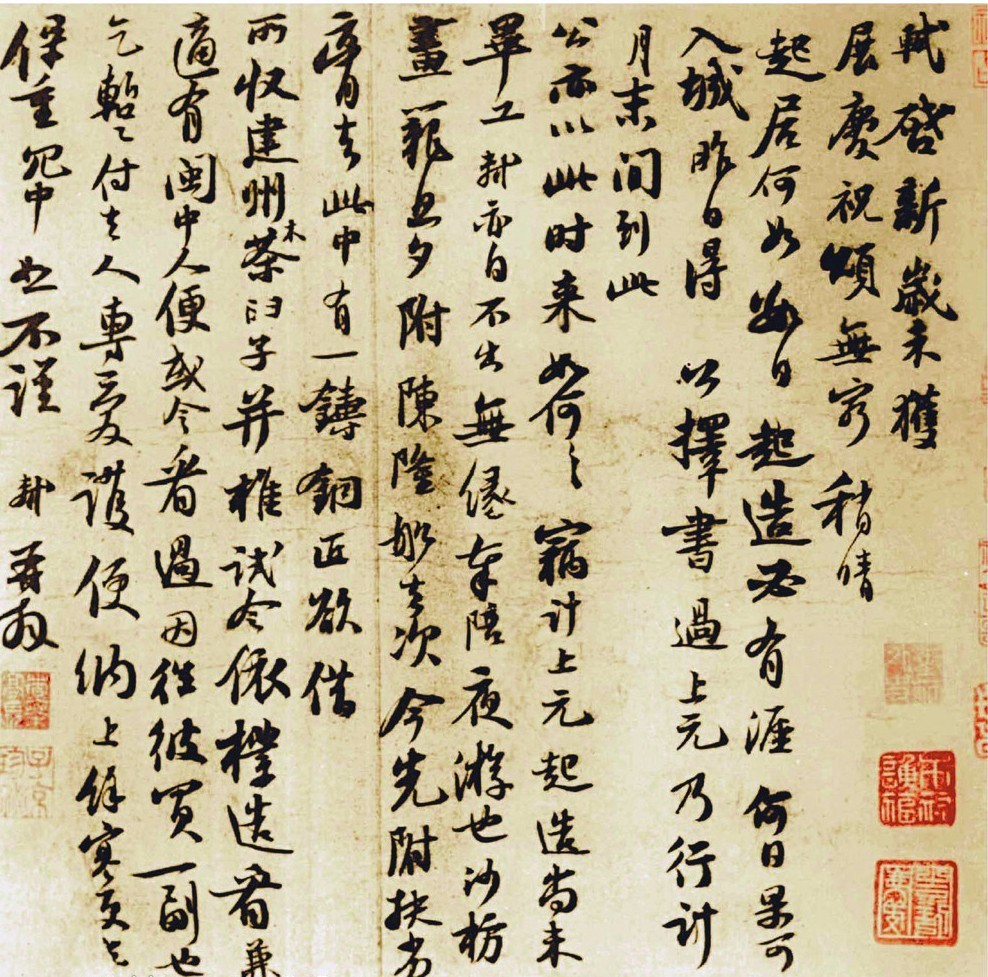 軾啓新歲未獲
展慶祝頌無窮稍晴
起居何如數日起造必有涯何日果可
入城昨日得公擇書過上元乃行計
月末間到此
公亦以此時來如何如何竊計上元起造尚未
畢工軾亦自不出無緣奉陪夜游也沙枋
畫籠旦夕附陳隆船去次今先附扶劣
膏去此中有一鑄銅匠欲借
所收建州木茶臼子并椎試令依樣造看兼
適有閩中人便或令看過因往彼買一副也
乞暫付去人專愛護便納上餘寒更乞
保重冗中恕不謹軾再拜